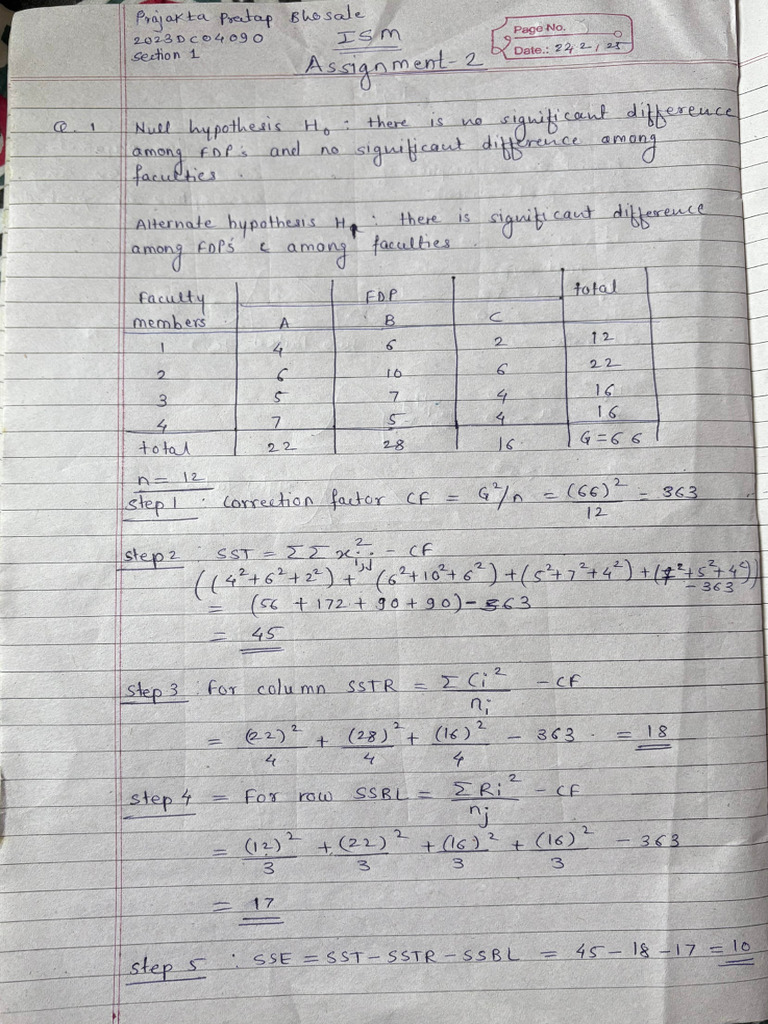 Prajakta Pratap Bhosale
2023DC04090
Section 1
ISM
Assignment-2
Page No.
Date.: 22/2/25
Q. 1 Null hypothesis H₀ : there is no significant difference
among FDP's and no significant difference among
faculties.
Alternate hypothesis H₁ : there is significant difference
among FDP's & among faculties.
Faculty FDP total
members A B C
1 4 6 2 12
2 6 10 6 22
3 5 7 4 16
4 7 5 4 16
total 22 28 16 G=66
n = 12
Step 1 : Correction factor CF = G²/n = (66)²/12 = 363
Step 2 SST = ΣΣ x²i,j - CF
((4²+6²+2²) + (6²+10²+6²) + (5²+7²+4²) + (7²+5²+4²)) - 363
= (56 + 172 + 90 + 90) - 363
= 45
Step 3 : For column SSTR = ΣCi²/ni - CF
= (22)²/4 + (28)²/4 + (16)²/4 - 363 . = 18
Step 4 = For row SSBL = ΣRi²/nj - CF
= (12)²/3 + (22)²/3 + (16)²/3 + (16)²/3 - 363
= 17
Step 5 : SSE = SST - SSTR - SSBL = 45 - 18 - 17 = 10